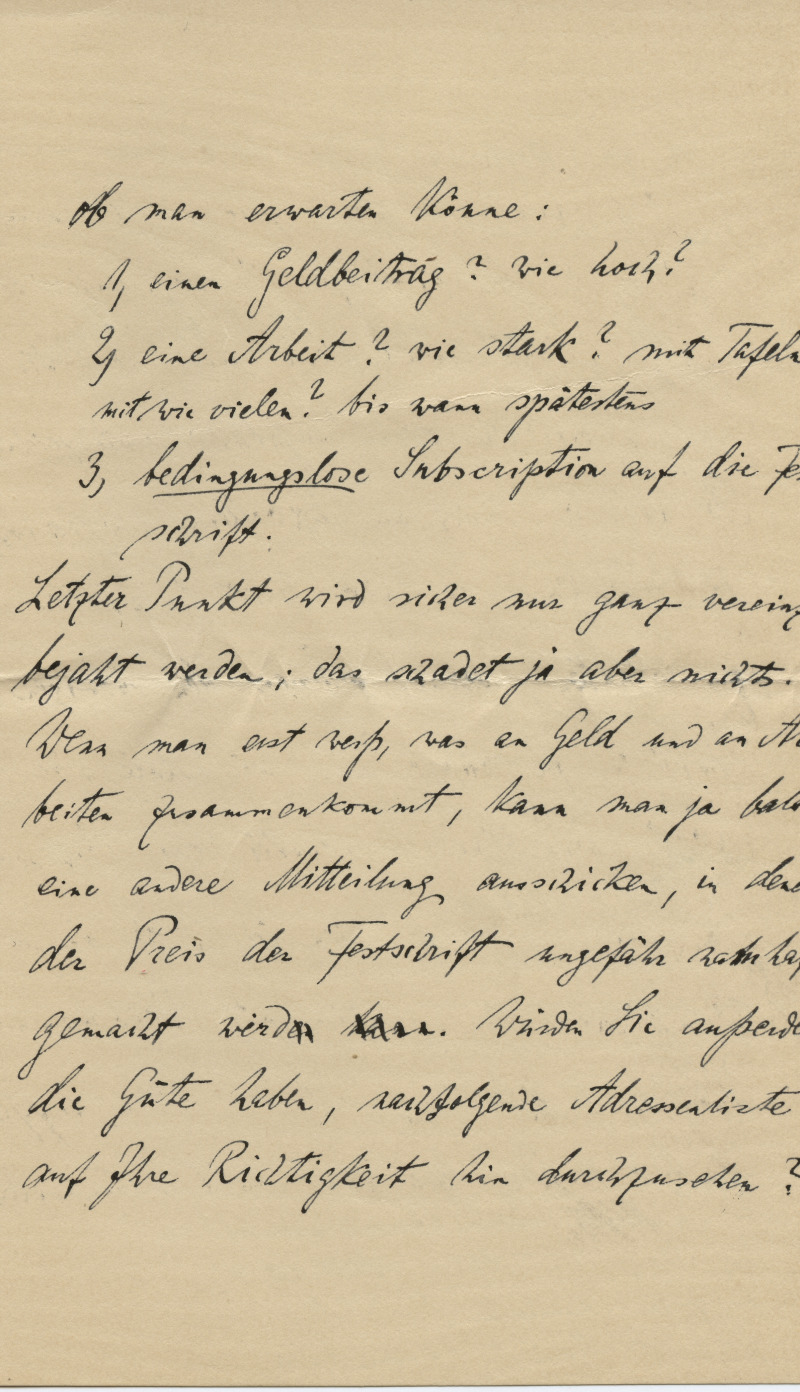 ob man erwarten könne:
1, einen Geldbeiträg? wie hoch?
2, eine Arbeit? wie stark? mit Tafeln
mit wie vielen? bis wann spätestens
3, bedingungslose Subscription auf die Fes
schrift.
Letzter Punkt wird sicher nur ganz vereinz
bejaht werden; das schadet ja aber nichts.
Wenn man erst weiß, was an Geld und an Ar
beiten zusammenkommt, kann man ja bald
eine andere Mitteilung ausschicken, in dene
der Preis der Festschrift ungefähr namhaf
gemacht werden kann. Würden Sie außerde
die Güte haben, nachfolgende Adressenliste
auf Ihre Richtigkeit hin durchzusehen?